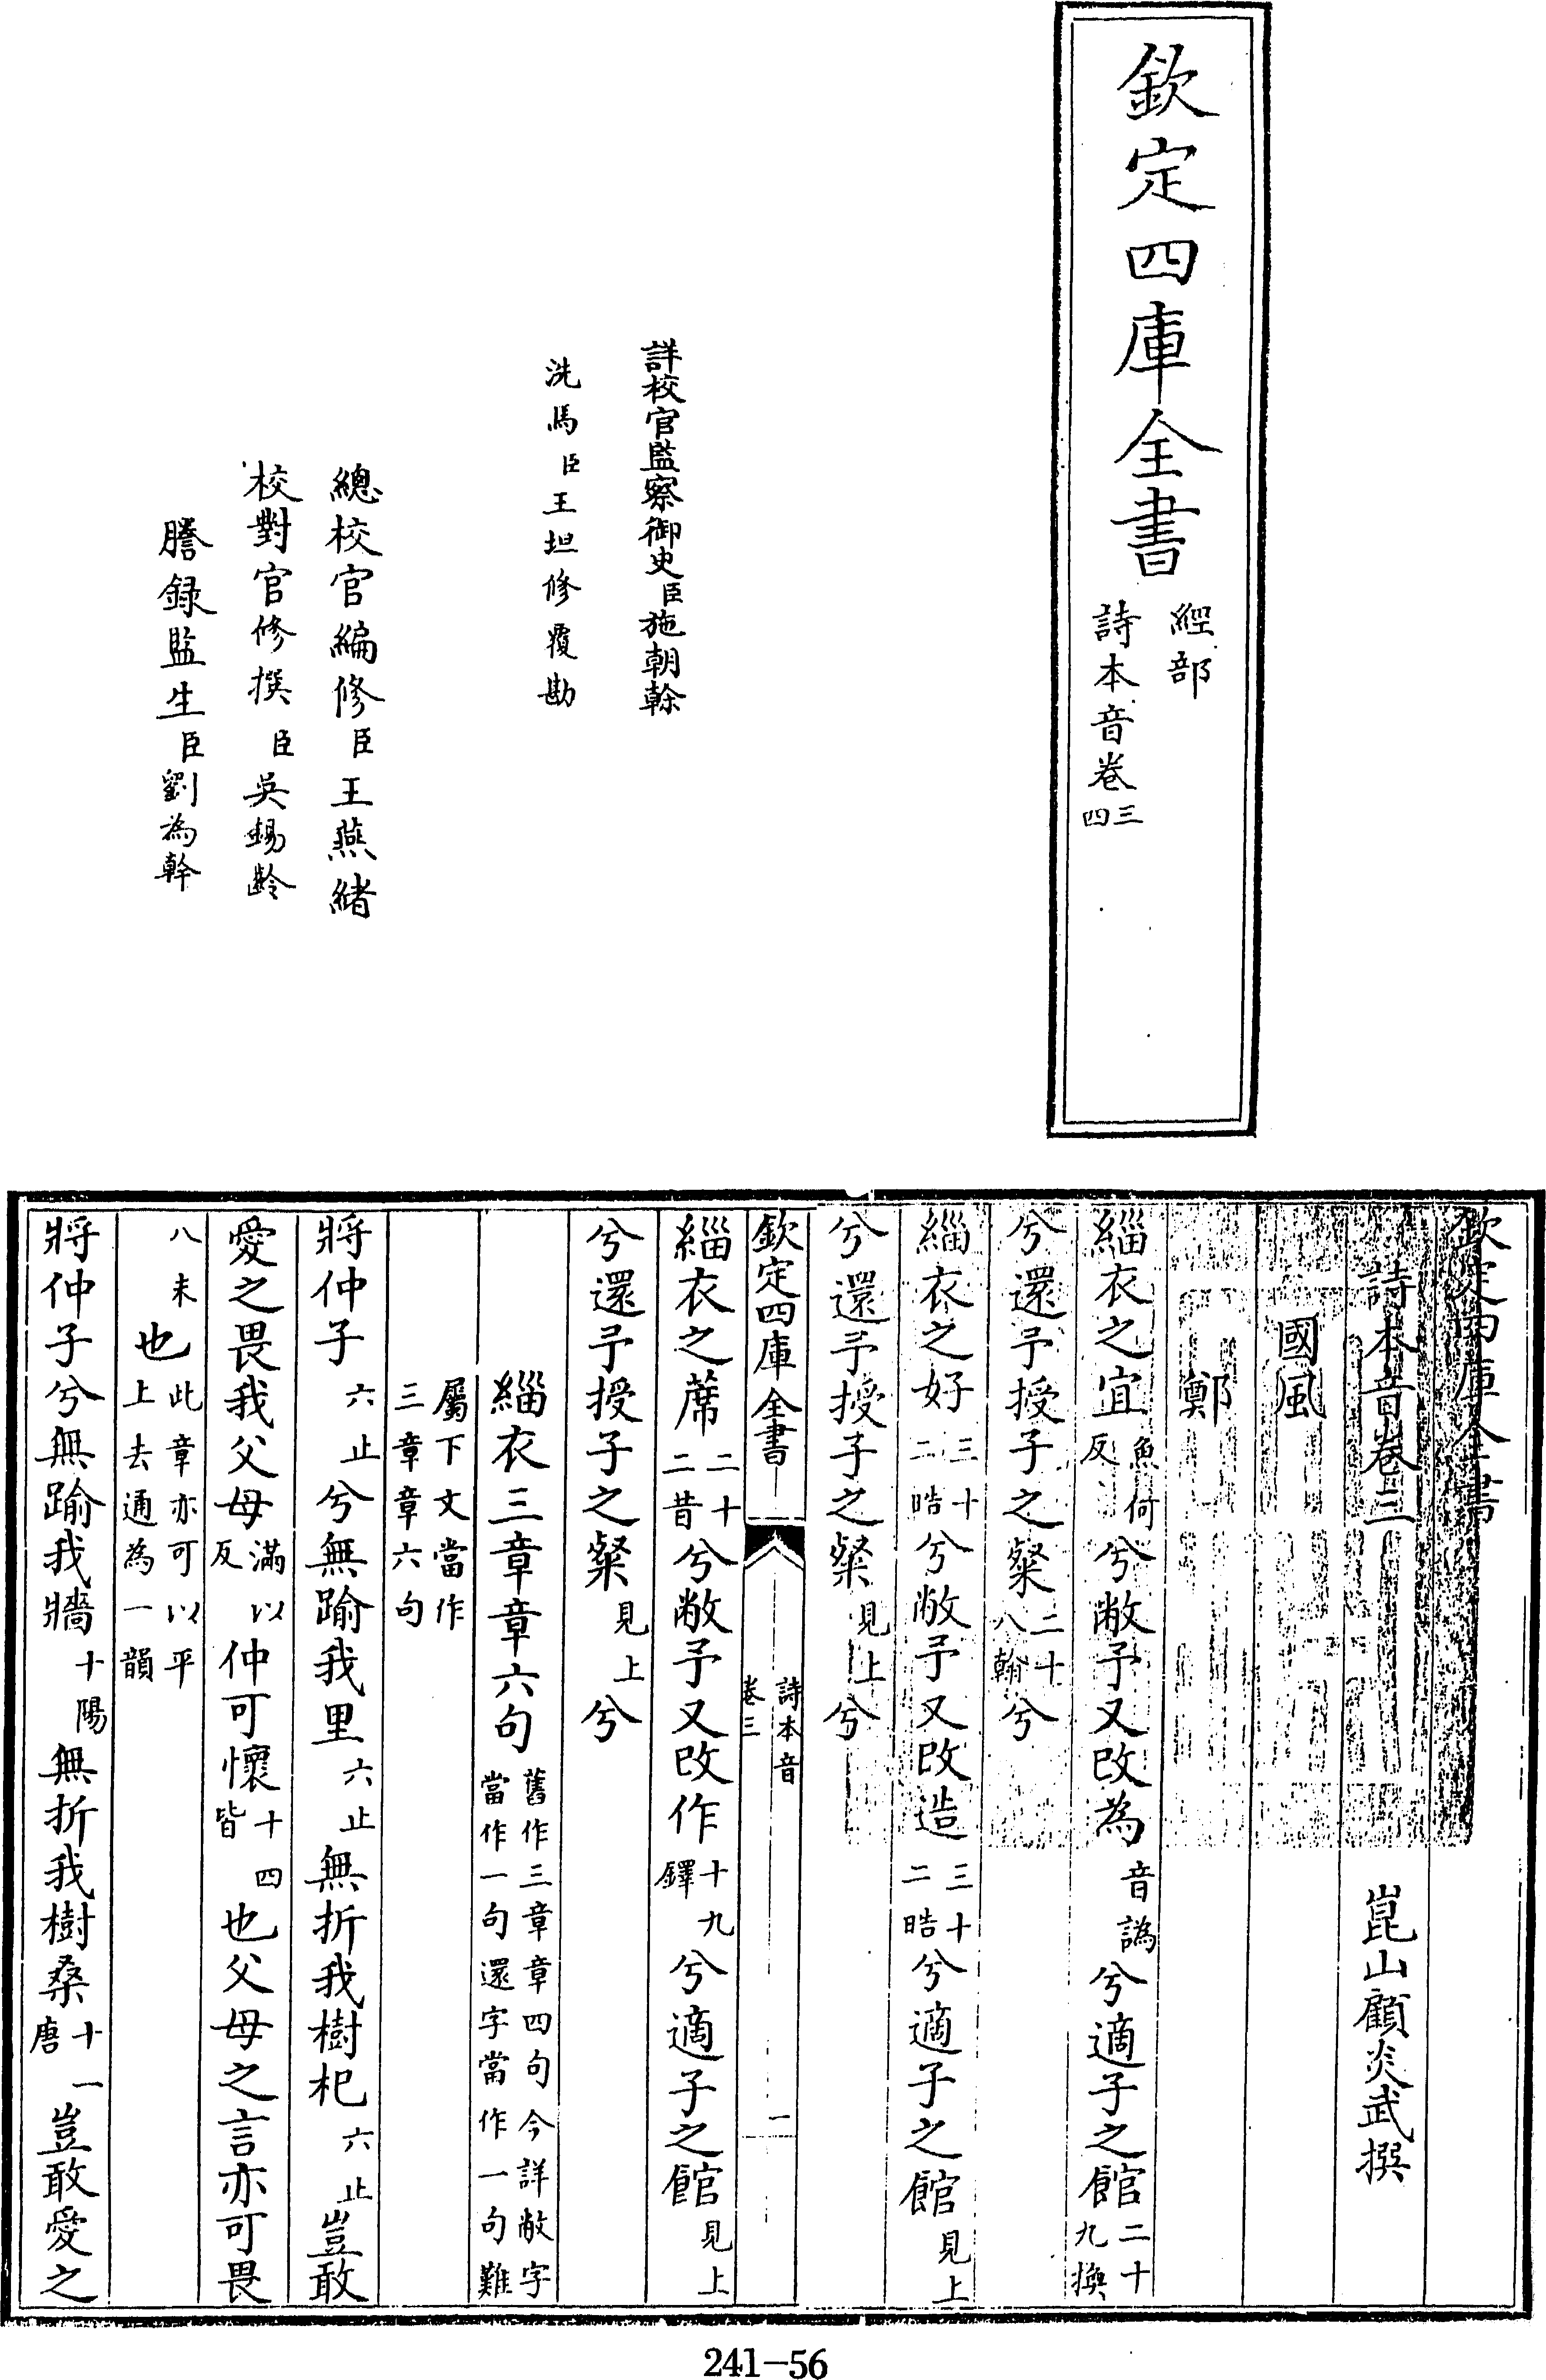 欽定四庫全書
經部
詩本音卷三四
詳校官監察御史臣施朝幹
洗馬臣王坦修覆勘
總校官編修臣王燕緒
校對官修撰臣吳錫齡
謄録監生臣劉為幹
欽定四庫全書
詩本音卷三
崑山顧炎武撰
國風
鄭
緇衣之宜魚何反兮敝予又改為音譌兮適子之館二十九換
兮還予授子之粲二十八翰兮
緇衣之好三十二晧兮敝予又改造三十二晧兮適子之館見上
兮還予授子之粲見上兮
欽定四庫全書
詩本音
卷三
一
緇衣之蓆二十二昔兮敝予又改作十九鐸兮適子之館見上
兮還予授子之粲見上兮
緇衣三章章六句舊作三章章四句今詳敝字當作一句還字當作一句難
屬下文當作三章章六句
將仲子六止兮無踰我里六止無折我樹杞六止豈敢
愛之畏我父母滿以反仲可懷十四皆也父母之言亦可畏
八未也此章亦可以平上去通為一韻
將仲子兮無踰我牆十陽無折我樹桑十一唐豈敢愛之
241-56